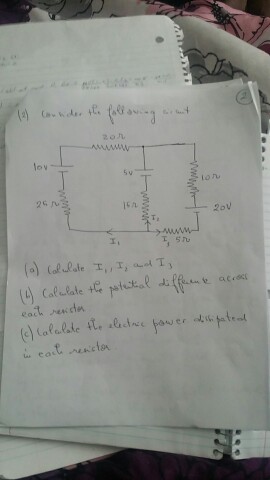 (2) Consider the following circuit
20Ω
10v
5v
10Ω
25Ω
15Ω
20V
I2
I1
I3 5Ω
(a) Calculate I1, I2 and I3
(b) Calculate the potential difference across
each resistor
(c) Calculate the electric power dissipated
in each resistor